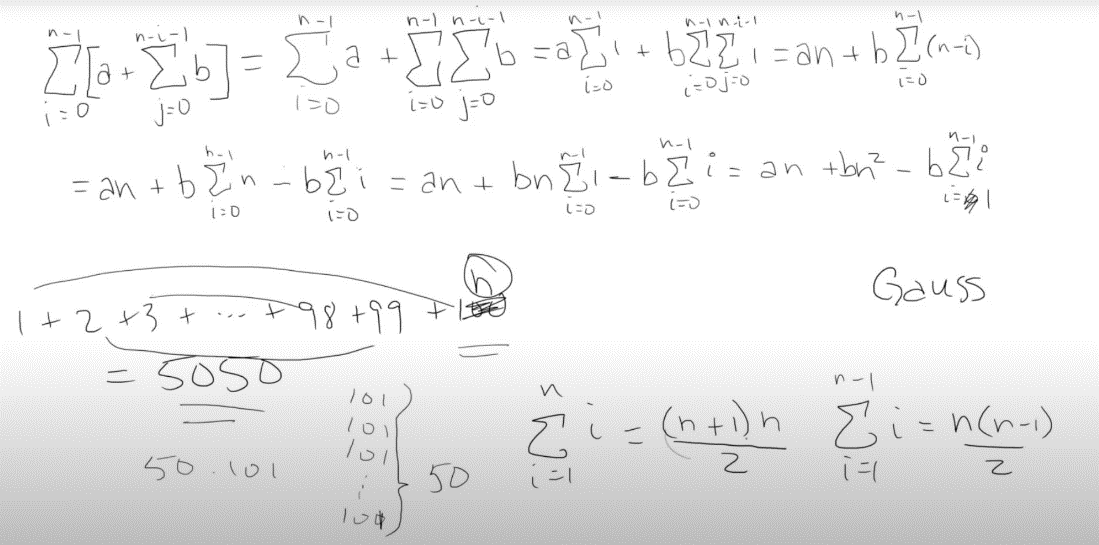 \sum_{i=0}^{n-1}[a + \sum_{j=0}^{n-i-1} b] = \sum_{i=0}^{n-1} a + \sum_{i=0}^{n-1} \sum_{j=0}^{n-i-1} b = a\sum_{i=0}^{n-1} 1 + b\sum_{i=0}^{n-1}\sum_{j=0}^{n-i-1} 1 = an + b\sum_{i=0}^{n-1}(n-i)
= an + b\sum_{i=0}^{n-1} n - b\sum_{i=0}^{n-1} i = an + bn\sum_{i=0}^{n-1} 1 - b\sum_{i=0}^{n-1} i = an + bn^2 - b\sum_{i=1}^{n-1} i
Gauss
1 + 2 + 3 + ... + 98 + 99 + n
= 5050
50 · 101
101
101
101
⋮
101
} 50
\sum_{i=1}^{n} i = \frac{(n+1)n}{2}
\sum_{i=1}^{n-1} i = \frac{n(n-1)}{2}